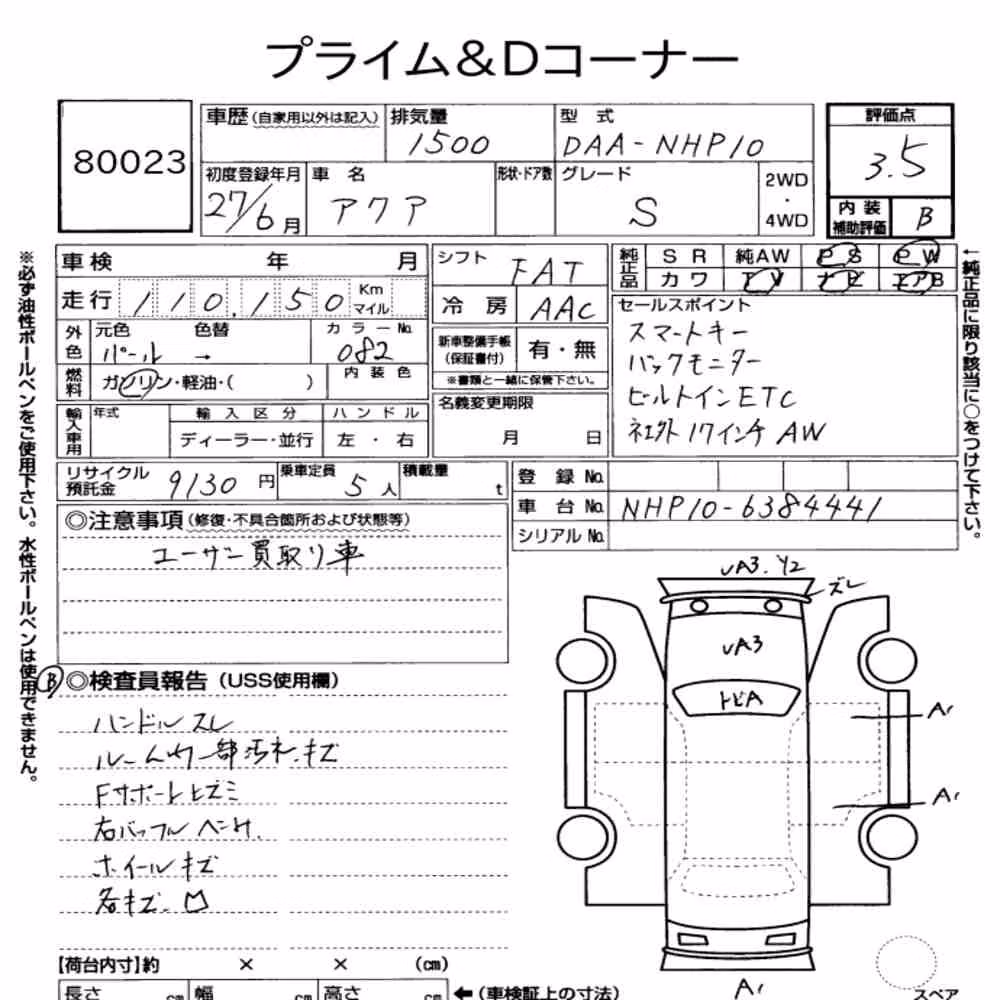 プライム＆Dコーナー
80023
車歴 (自家用以外は記入)
排気量
1500
型 式
DAA-NHP10
評価点
3.5
初度登録年月
27/6月
車 名
アクア
形状・ドア数
グレード
S
2WD
・
4WD
内 装
補助評価
B
※必ず油性ボールペンをご使用下さい。水性ボールペンは使用できません。
車検 年 月
シフト
FAT
純正品
S R 純AW P S P W
カワ T V ナビ エアB
←純正品に限り該当に○をつけて下さい。
走行 110,150 Km
マイル
冷 房 AAC
セールスポイント
スマートキー
バックモニター
ビルトインETC
社外17インチAW
外色
元色 色替
パール →
カラーNo.
082
新車整備手帳
(保証書付)
有・無
※書類と一緒に保管下さい。
燃料
ガソリン・軽油・( )
内 装 色
名義変更期限
月 日
輸入車用
年式
輸 入 区 分
ハ ン ド ル
ディーラー・並行
左 ・ 右
リサイクル
預託金
9130円
乗車定員
5人
積載量
t
登 録 No.
車 台 No. NHP10-6384441
シリアル No.
◎注意事項 (修復・不具合箇所および状態等)
ユーザン買取り車
B ◎検査員報告 (USS使用欄)
ハンドルスレ
ルーム内一部汚れ.キズ
Fサポートヒズミ
右バッフルヘコミ.
ホイールキズ
各キズ.凹
UA3.Y2
ズレ
UA3
トビA
A1
A1
A1
スペア
【荷台内寸】約 × × (cm)
長さ cm 幅 cm 高さ cm ← (車検証上の寸法)